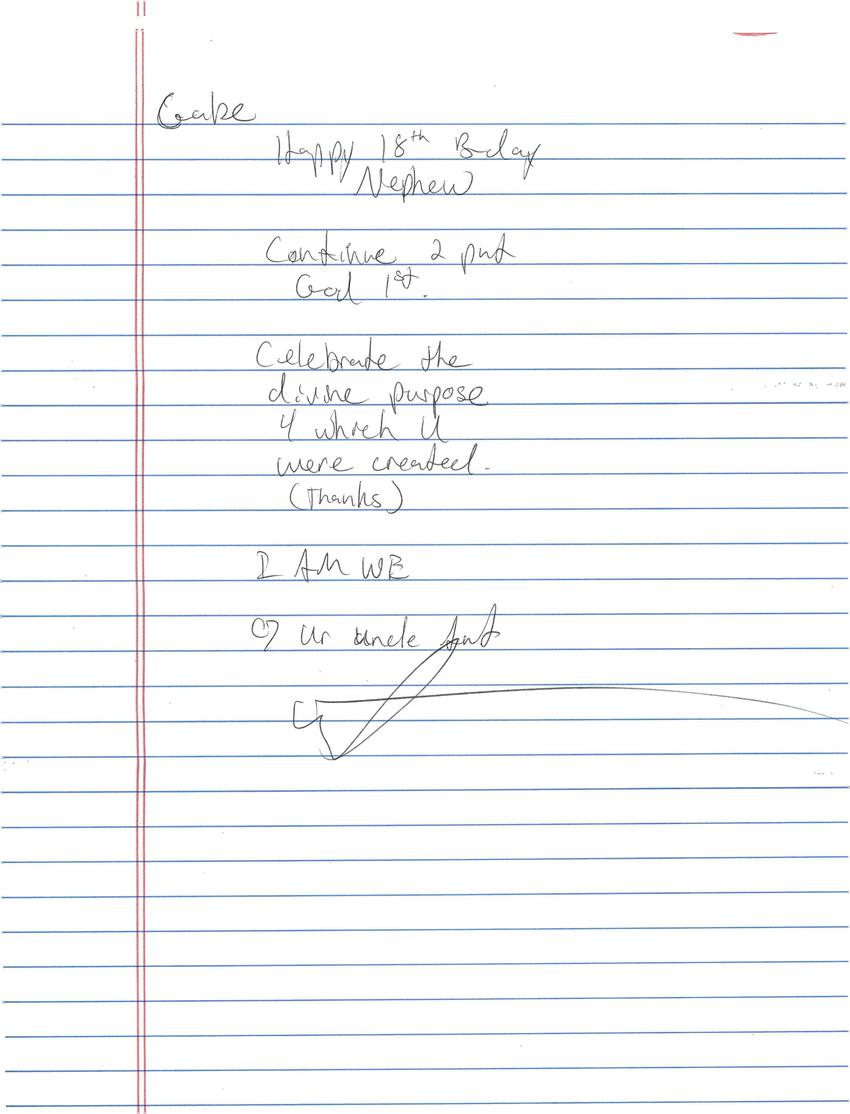 Gabe
Happy 18th B-day
Nephew
Continue 2 put
God 1st.
Celebrate the
divine purpose
4 which U
were created.
(Thanks)
I AM WE
Ur uncle